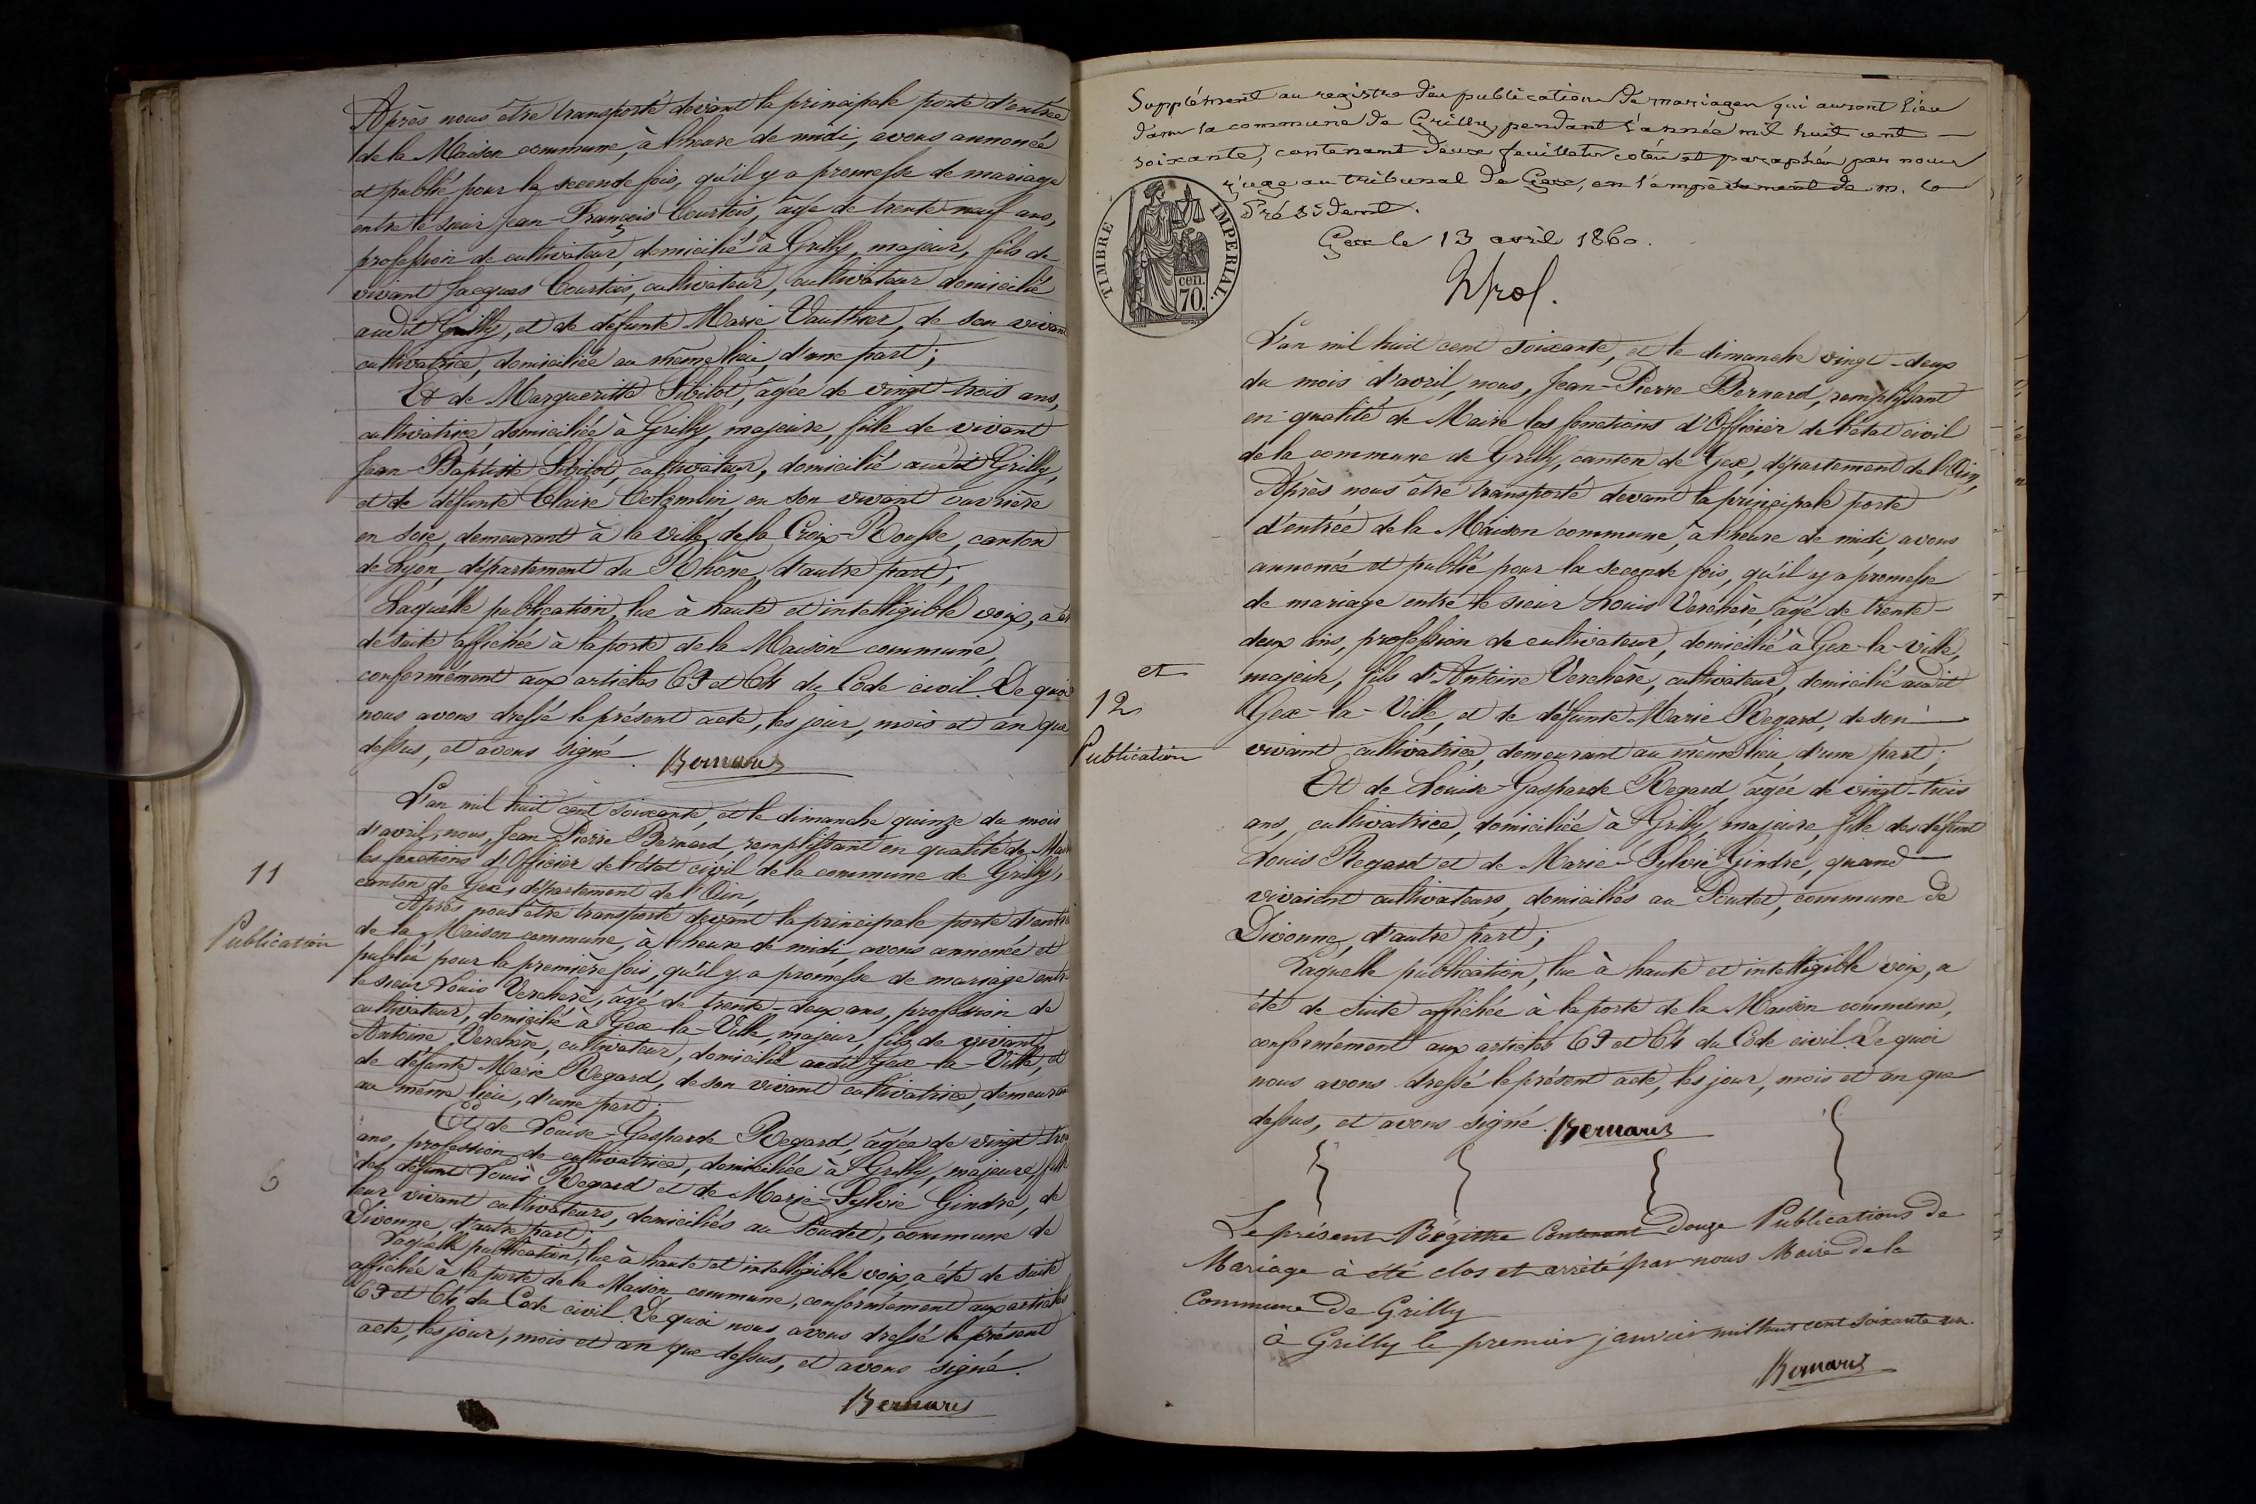 Après nous être transporté devant la principale porte d'entrée
de la Maison commune, à l'heure de midi, avons annoncé
et publié pour la seconde fois, qu'il y a promesse de mariage
entre le sieur Jean-François Courtois, âgé de trente-neuf ans,
profession de cultivateur, domicilié à Grilly, majeur, fils de
vivant Jacques Courtois, cultivateur, cultivateur domicilié
audit Grilly, et de défunte Marie Vauthier, de son vivant
cultivatrice, domiciliée au même lieu, d'une part;
Et de Margueritte Sibilot, âgée de vingt-trois ans,
cultivatrice, domiciliée à Grilly, majeure, fille de vivant
Jean-Baptiste Sibilot, cultivateur, domicilié audit Grilly,
et de défunte Claire en son vivant ouvrière
en soie, demeurant à la ville de la Croix-Rousse, canton
de Lyon, département du Rhône, d'autre part;
Laquelle publication, lue à haute et intelligible voix, a été
de suite affichée à la porte de la Maison commune,
conformément aux articles 63 et 64 du Code civil. De quoi
nous avons dressé le présent acte, les jour, mois et an que
dessus, et avons signé. Bernard
11
Publication
L'an mil huit cent soixante, et le dimanche quinze du mois
d'avril, nous, Jean-Pierre Bernard, remplissant en qualité de Maire
les fonctions d'Officier de l'état civil de la commune de Grilly,
canton de Gex, département de l'Ain,
Après nous être transporté devant la principale porte d'entrée
de la Maison commune, à l'heure de midi, avons annoncé et
publié pour la première fois, qu'il y a promesse de mariage entre
le sieur Louis Verchère, âgé de trente-deux ans, profession de
cultivateur, domicilié à Gex-la-Ville, majeur, fils de vivant
Antoine Verchère, cultivateur, domicilié audit Gex-la-Ville, et
de défunte Marie Regard, de son vivant cultivatrice, demeurant
au même lieu, d'une part;
Et de Louise-Gasparde Regard, âgée de vingt-trois
ans, profession de cultivatrice, domiciliée à Grilly, majeure, fille
des défunt Louis Regard et de Marie-Sylvie Gindre, de
leur vivant cultivateurs, domiciliés au Poudet, commune de
Divonne, d'autre part;
Laquelle publication, lue à haute et intelligible voix, a été de suite
affichée à la porte de la Maison commune, conformément aux articles
63 et 64 du Code civil. De quoi nous avons dressé le présent
acte, les jour, mois et an que dessus, et avons signé.
Bernard
6
Supplément au registre des publications de mariages qui auront lieu
dans la commune de Grilly, pendant l'année mil huit cent
soixante, contenant deux feuillets cotés et paraphés par nous
juge au tribunal de Gex, en l'empêchement de M. le
Président.
Gex le 13 avril 1860.
TIMBRE IMPERIAL.
cen.
70.
L'an mil huit cent soixante, et le dimanche vingt-deux
du mois d'avril, nous, Jean-Pierre Bernard, remplissant
en qualité de Maire les fonctions d'Officier de l'état civil
de la commune de Grilly, canton de Gex, département de l'Ain,
Après nous être transporté devant la principale porte
d'entrée de la Maison commune, à l'heure de midi, avons
annoncé et publié pour la seconde fois, qu'il y a promesse
de mariage entre le sieur Louis Verchère, âgé de trente-
deux ans, profession de cultivateur, domicilié à Gex-la-ville,
et
12
Publication
majeur, fils d'Antoine Verchère, cultivateur, domicilié audit
Gex-la-Ville, et de défunte Marie Regard, de son
vivant cultivatrice, demeurant au même lieu, d'une part;
Et de Louise-Gasparde Regard, âgée de vingt-trois
ans, cultivatrice, domiciliée à Grilly, majeure, fille des défunt
Louis Regard et de Marie-Sylvie Gindre, quand
vivaient cultivateurs, domiciliés au Poudet, commune de
Divonne, d'autre part;
Laquelle publication, lue à haute et intelligible voix, a
été de suite affichée à la porte de la Maison commune,
conformément aux articles 63 et 64 du Code civil. De quoi
nous avons dressé le présent acte, les jour, mois et an que
dessus, et avons signé. Bernard
Le présent Régitre Contenant Douze Publications de
Mariage à été clos et arrêté par nous Maire de la
Commune de Grilly
à Grilly le premier janvier mil huit cent soixante un.
Bernard